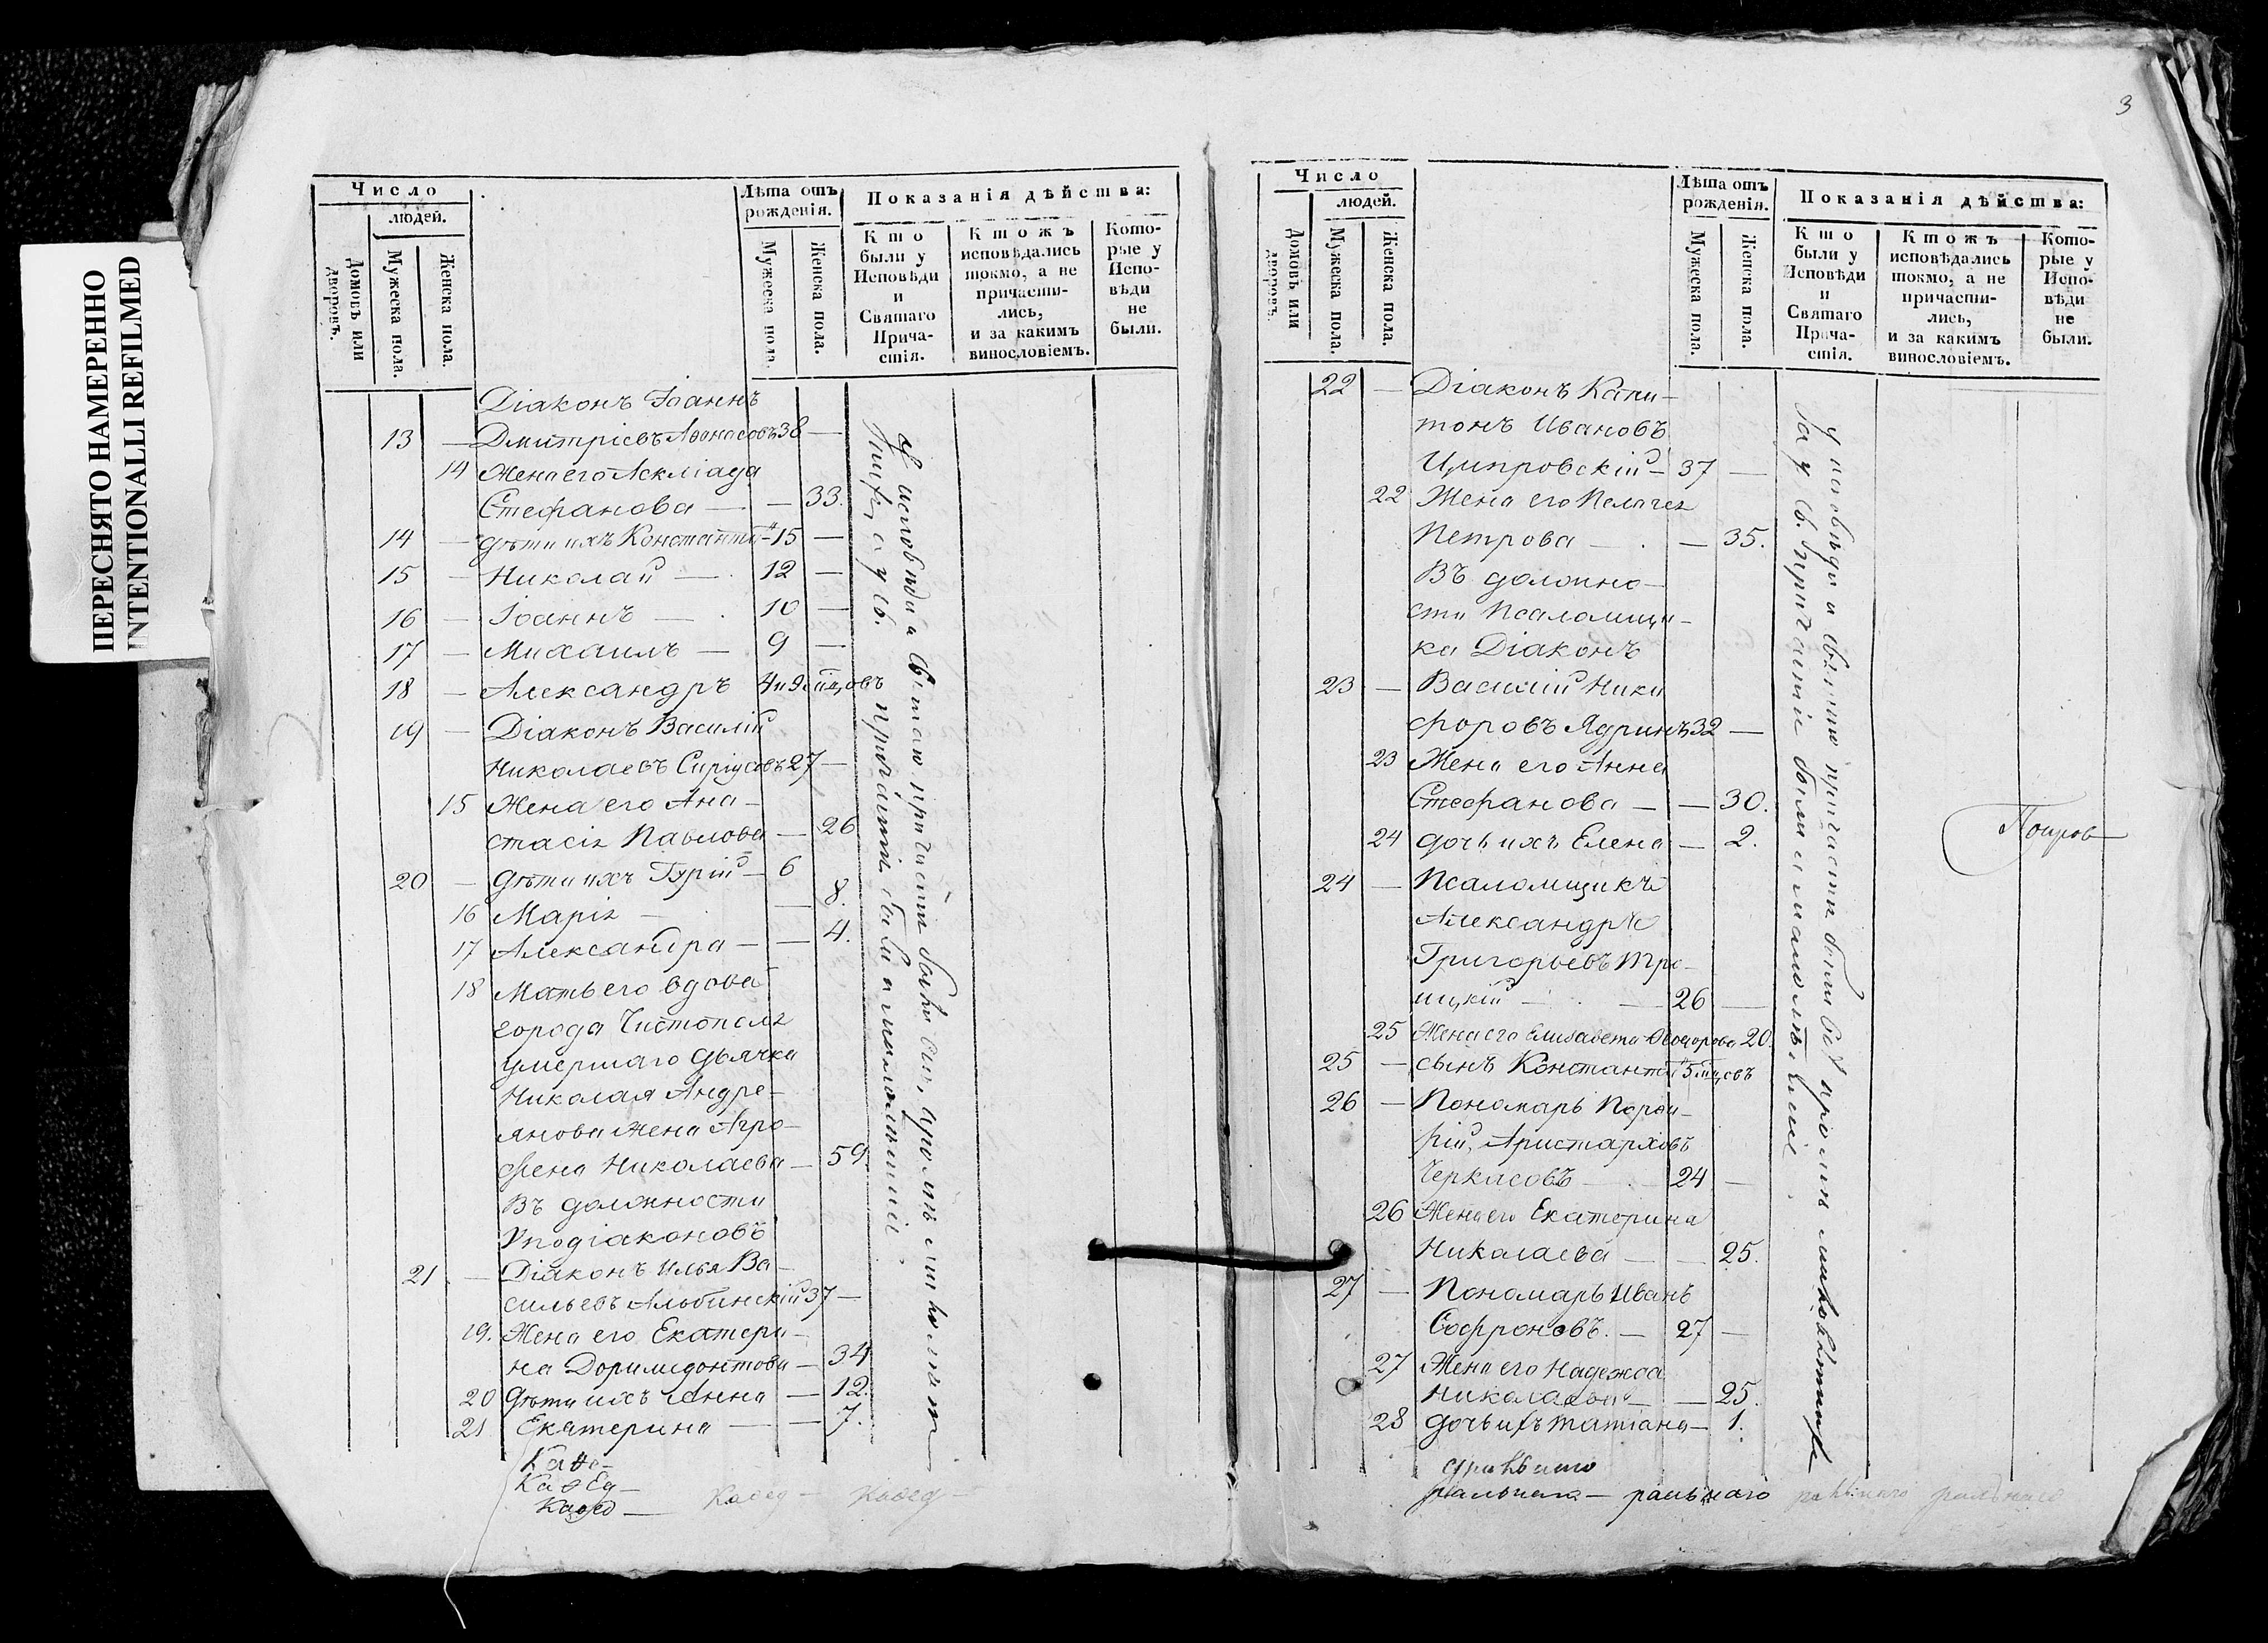 ПЕРЕСНЯТО НАМЕРЕННО
INTENTIONALLI REFILMED
3
Число
людей.
Домовъ или дворовъ.
Мужеска пола.
Женска пола.
Лѣта отъ рожденія.
Мужеска пола.
Женска пола.
Показанія дѣйства:
Кто были у Исповѣди и Святаго Прича-стія.
Ктожъ исповѣдались токмо, а не причасти-лись, и за какимъ винословіемъ.
Кото-рые у Испо-вѣди не были.
Діаконъ Іоаннъ
13 — Дмитріевъ Аѳонасовъ 38 —
14 Жена его Асклiада
Стефанова — — 33.
14 — дѣти ихъ Константи-нъ 15 —
15 — Николай — 12 —
16 — Іоаннъ — 10 —
17 — Михаилъ — 9 —
18 — Александръ 4 и 9 мцовъ
19 — Діаконъ Василій
Николаевъ 27 —
15 Жена его Ана-
стасія Павлова — 26
20 — дѣти ихъ Гурій — 6
16 Марія — — 8.
17 Александра — — 4.
18 Мать его вдова
города Чистополя
умершаго дьячка
Николая Андре-
янова жена Агро-
фена Николаева — 59
Въ должности
Уподіаконовъ
21 — Діаконъ Илья Ва-
сильевъ Альбинскій 37 —
19. Жена его Екатери-
на Доримедонтова — 34
20 дѣти ихъ Анна — 12.
21 Екатерина — — 7.
Каѳе-
Каѳед-
Каѳед — Каѳед — Каѳед —
у исповѣди и святаго причастія были
у св. причастія были и малолѣтніи.
Число
людей.
Домовъ или дворовъ.
Мужеска пола.
Женска пола.
Лѣта отъ рожденія.
Мужеска пола.
Женска пола.
Показанія дѣйства:
Кто были у Исповѣди и Святаго Прича-стія.
Ктожъ исповѣдались токмо, а не причасти-лись, и за какимъ винословіемъ.
Кото-рые у Испо-вѣди не были.
22 — Діаконъ Капи-
тонъ Ивановъ
Ципровскій — 37 —
22 Жена его Пелагея
Петрова — — 35.
Въ должно-
сти Псаломщи-
ка Діаконъ
23 — Василій Ники
форовъ Ядринъ 32 —
23 Жена его Анна
Стефанова — — 30.
24 дочь ихъ Елена — 2.
24 — Псаломщикъ
Александръ
Григорьевъ Тро-
ицкій — — 26 —
25 Жена его Елисавета Ѳеодорова 20.
25 — сынъ Константи нъ 5 мцовъ
26 — Пономарь Порфи-
рій, Аристарховъ
Черкасовъ — 24 —
26 Жена его Екатерина
Николаева — — 25.
27 — Пономарь Иванъ
Софроновъ. — 27 —
27 Жена его Надежда
Николаева — — 25.
28 дочь ихъ Татіана — 1.
ральнаго — ральнаго ральнаго ральнаго
у исповѣди и святаго причастія были всѣ кромѣ малолѣтнихъ
а у св. причастія были и малолѣтніи.